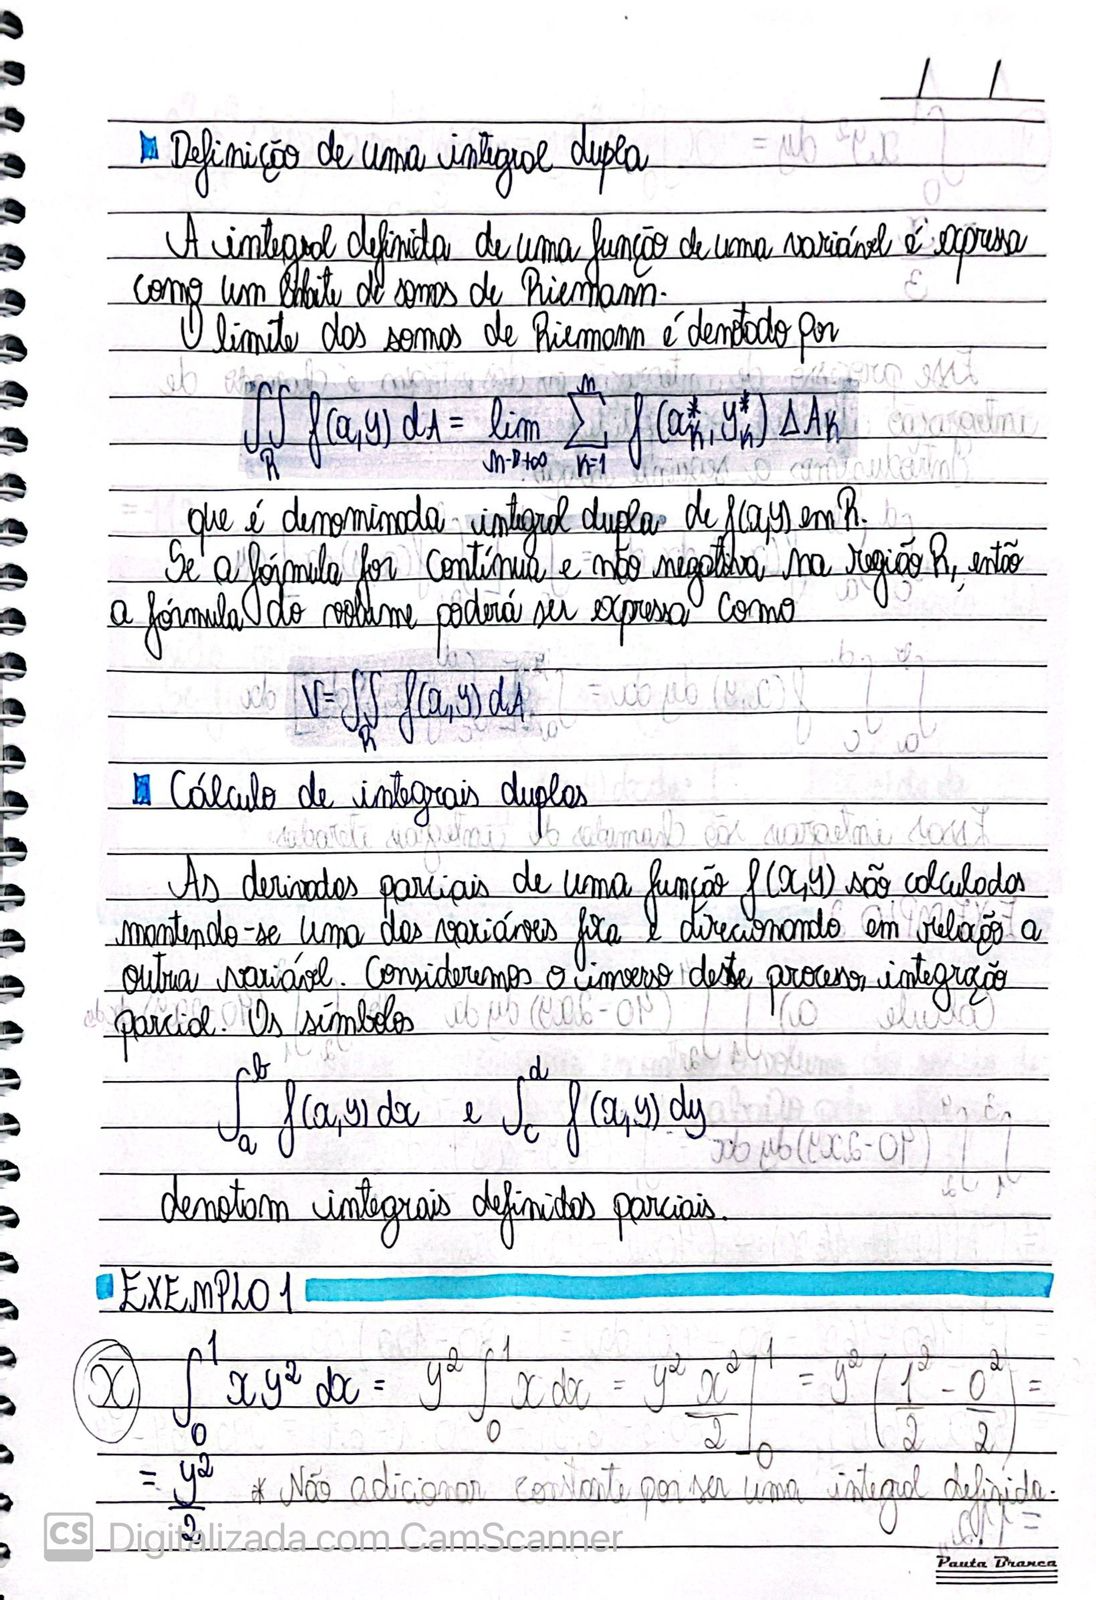 Definição de uma integral dupla
A integral definida de uma função de uma variável é expressa
como um limite de somas de Riemann.
O limite das somas de Riemann é denotado por
∬_R f(x,y) dA = lim_{n→+∞} Σ_{k=1}^{n} f(x*_k, y*_k) ΔA_k
que é denominada integral dupla de f(x,y) em R.
Se a fórmula for contínua e não negativa na região R, então
a fórmula do volume poderá ser expressa como
V = ∬_R f(x,y) dA
Cálculo de integrais duplas
As derivadas parciais de uma função f(x,y) são calculadas
mantendo-se uma das variáveis fixa e direcionando em relação a
outra variável. Consideremos o inverso deste processo, integração
parcial. Os símbolos
∫_a^b f(x,y) dx e ∫_c^d f(x,y) dy
denotam integrais definidas parciais.
EXEMPLO 1
x ∫_0^1 xy² dx = y² ∫_0^1 x dx = y² x²/2 ]_0^1 = y² (1²/2 - 0²/2) =
= y²/2 * Não adicionar constante por ser uma integral definida.
CS Digitalizada com CamScanner
Pauta Branca